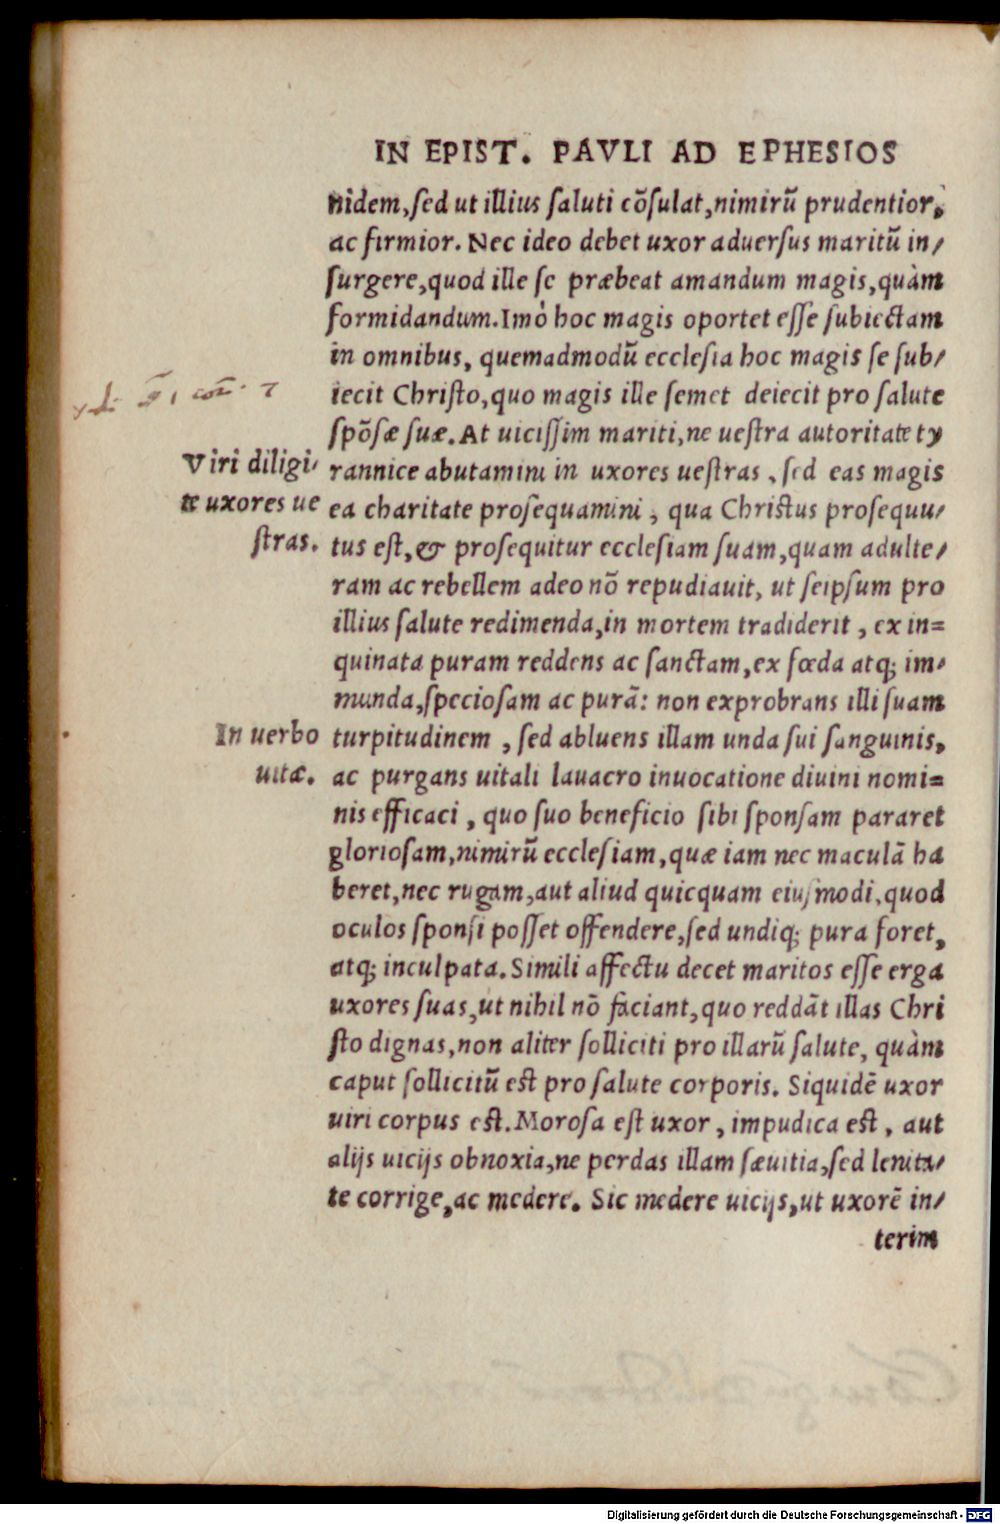 IN EPIST. PAVLI AD EPHESIOS
nidem,ſed ut illius ſaluti cõſulat,nimirũ prudentior,
ac firmior. Nec ideo debet uxor aduerſus maritũ in/
ſurgere,quod ille ſe præbeat amandum magis,quàm
formidandum.Imò hoc magis oportet eſſe ſubiectam
in omnibus, quemadmodũ eccleſia hoc magis ſe ſub/
iecit Chriſto,quo magis ille ſemet deiecit pro ſalute
ſpõſæ ſuæ. At uiciſſim mariti,ne ueſtra autoritate ty
Viri diligi/
te uxores ue
ſtras.
rannice abutamini in uxores ueſtras, ſed eas magis
ea charitate proſequamini, qua Chriſtus proſequu/
tus eſt,& proſequitur eccleſiam ſuam,quam adulte/
ram ac rebellem adeo nõ repudiauit, ut ſeipſum pro
illius ſalute redimenda,in mortem tradiderit, ex in=
quinata puram reddens ac ſanctam,ex fœda atq; im/
munda,ſpecioſam ac purã: non exprobrans illi ſuam
In uerbo
uitæ.
turpitudinem, ſed abluens illam unda ſui ſanguinis,
ac purgans uitali lauacro inuocatione diuini nomi=
nis efficaci, quo ſuo beneficio ſibi ſponſam pararet
glorioſam,nimirũ eccleſiam,quæ iam nec maculã ha
beret,nec rugam,aut aliud quicquam eiuſmodi,quod
oculos ſponſi poſſet offendere,ſed undiq; pura foret,
atq; inculpata. Simili affectu decet maritos eſſe erga
uxores ſuas,ut nihil nõ faciant,quo reddãt illas Chri
ſto dignas,non aliter ſolliciti pro illarũ ſalute, quàm
caput ſollicitũ eſt pro ſalute corporis. Siquidẽ uxor
uiri corpus eſt.Moroſa eſt uxor, impudica eſt, aut
alijs uicijs obnoxia,ne perdas illam ſæuitia,ſed lenita/
te corrige,ac medere. Sic medere uicijs,ut uxorẽ in/
terim
Digitalisierung gefördert durch die Deutsche Forschungsgemeinschaft - DFG